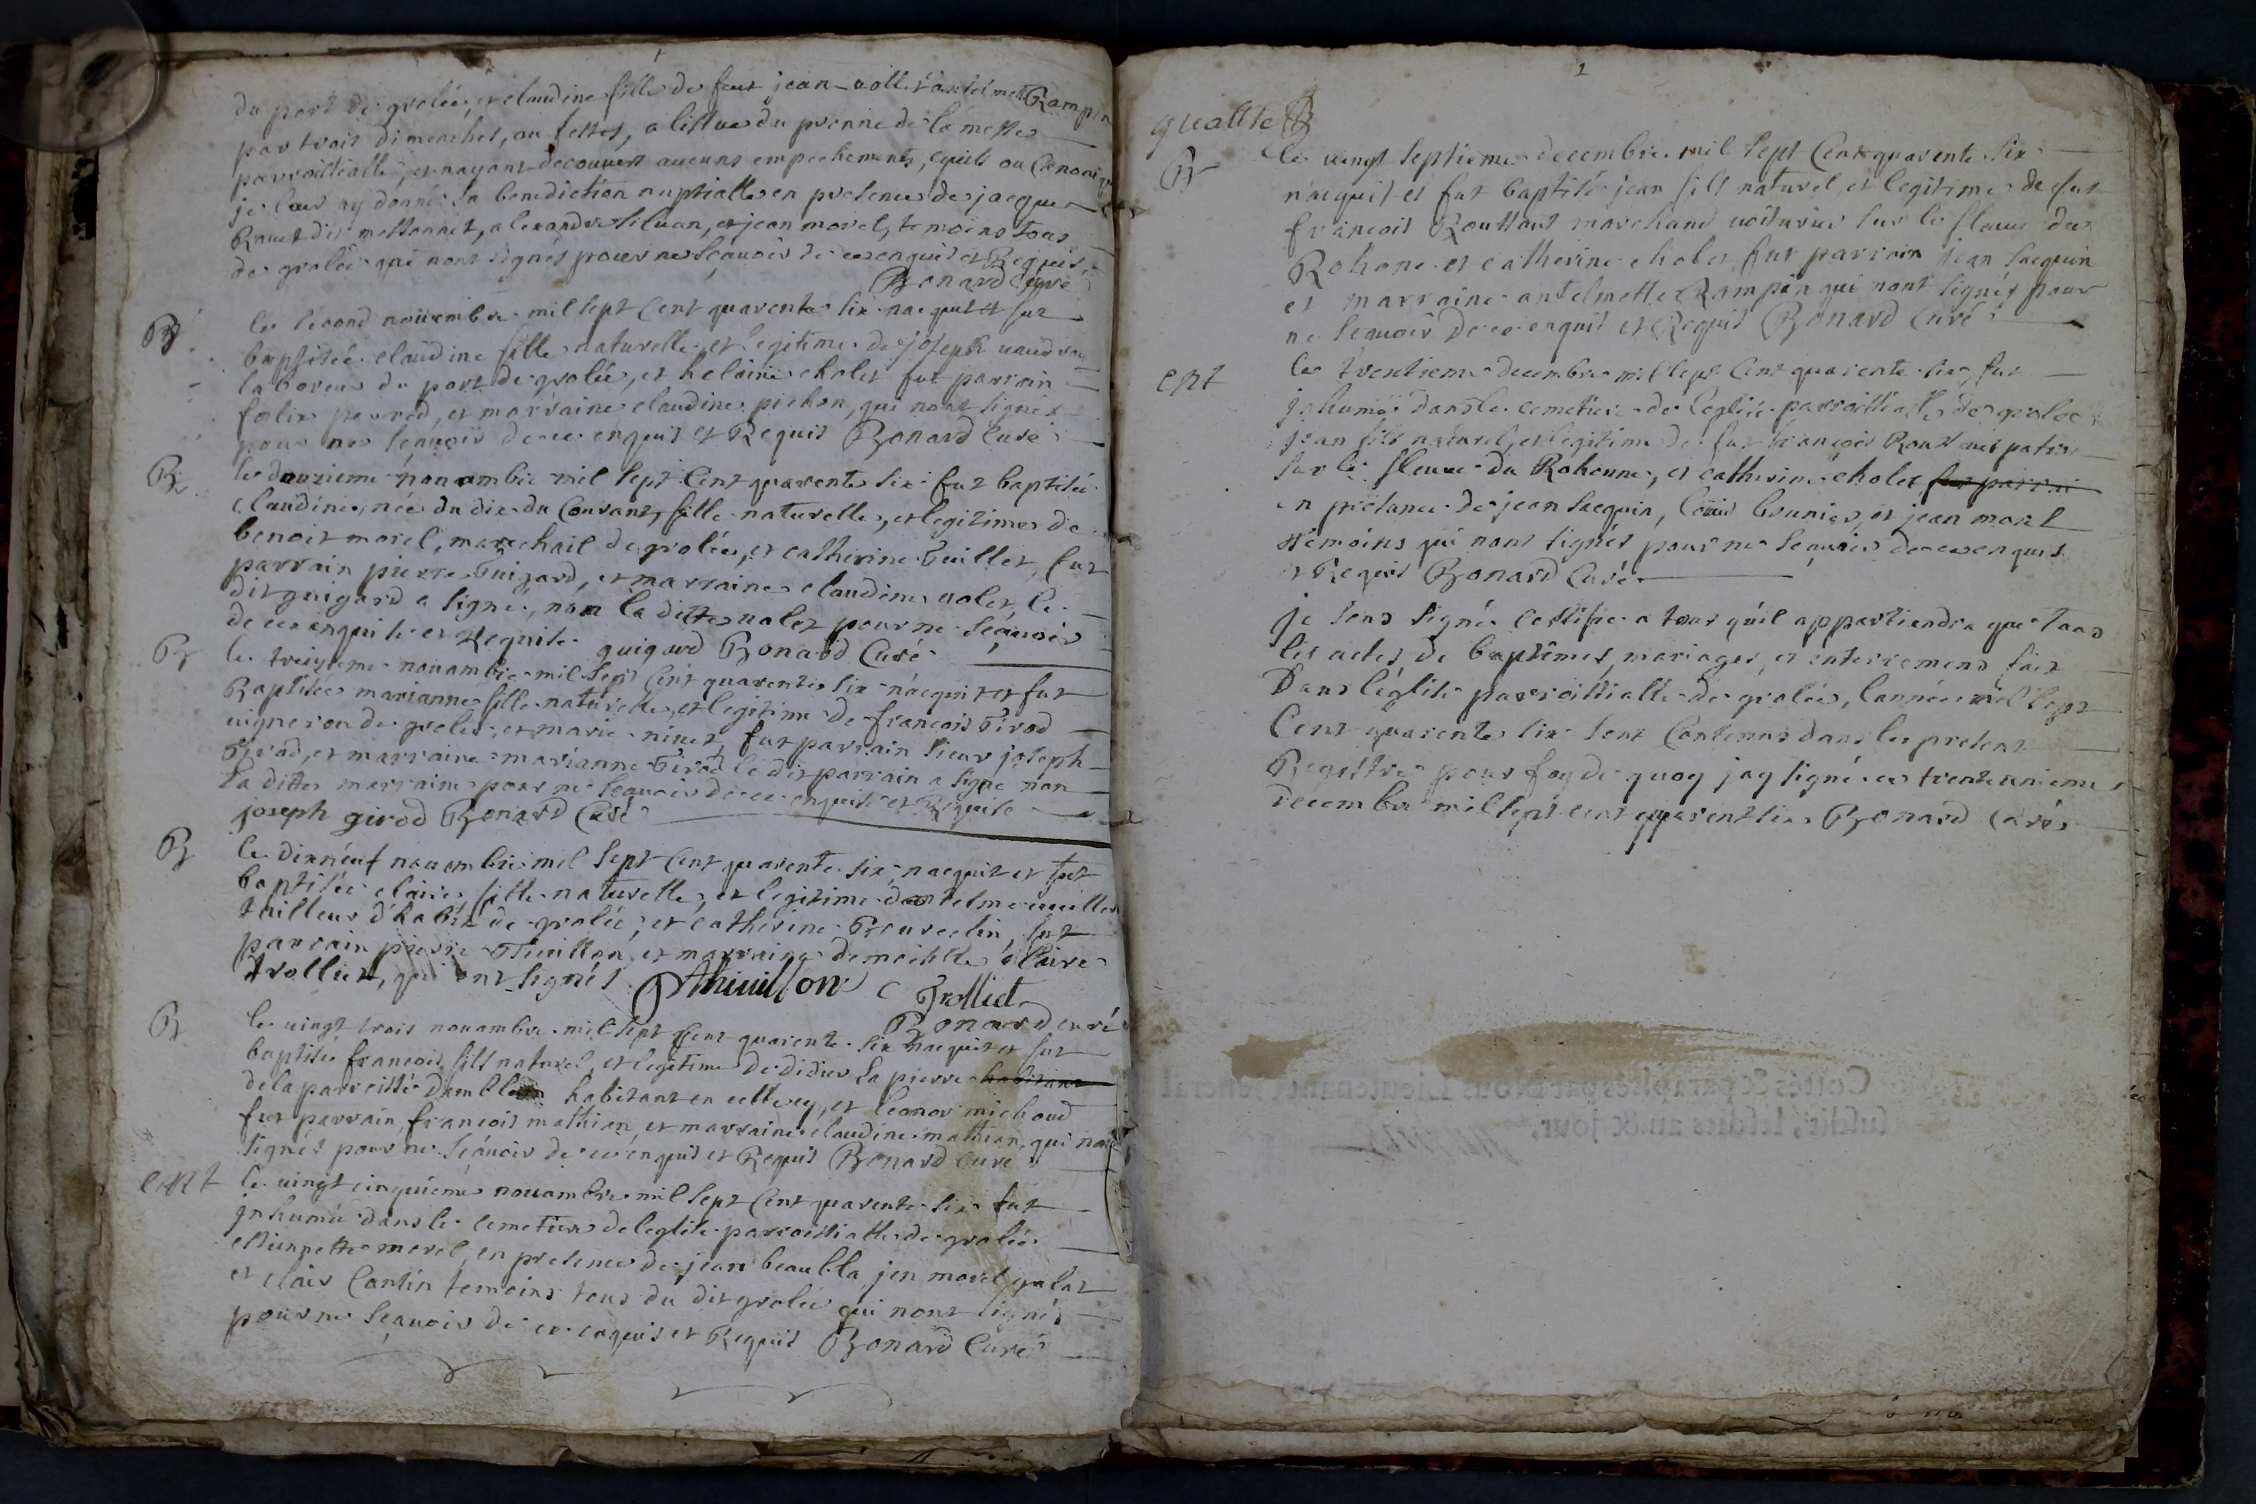 du port de grolée, et claudine fille de feut jean uollet antelmette Rampin
par trois dimenches, ou festes, a lissue du pronne de la messe
parroissialle, et nayant decouvert aucuns empechements, civils ou Canoniques
je leur ay donné la benediction nuptialle en presence de jacque
Ravet dit messonnet, alexandre siluan, et jean morel, temoins tous
de grolée qui nont signés pour ne sçauoir de ce enquis et Requis
Bonard Curé
B
le second nouembre mil sept Cent quarente six nacquit et fut
baptisée claudine fille naturelle et legitime de joseph
laboreur du port de grolée, et helaine cholet fut parrain
felix et marraine claudine pichon, qui nont signés
pour ne sçauoir de ce enquis et Requis Bonard Curé
B
le douzieme nouambre mil sept Cent quarente six fut baptisée
claudine, née du dix du Courant, fille naturelle, et legitime de
benoit morel, marechail de grolée, et catherine Guillet, fut
parrain pierre Guigard, et marraine claudine uolet, le
dit guigard a signé, non la ditte uolet pour ne sçauoir
de ce enquise et Requise guigard Bonard Curé
B
le treizieme nouambre mil sept Cent quarente six nacquit et fut
Baptisée marianne fille naturelle, et legitime de francois Girod
uigneron de grolée, et marie niuet, fut parrain sieur joseph
Girod, et marraine marianne Girod le dit parrain a signé non
la ditte marraine pour ne sçauoir de ce enquise et Requise
joseph girod Bonard Curé
B
le dixneuf nouambre mil sept Cent quarente six, nacquit et fut
baptisée claire, fille naturelle, et legitime dantelme
tailleur d'habit de grolée, et catherine fut
parrain pierre Thiuillon, et marraine demoiselle claire
trolliet, qui ont signés Pthiuillon C Trolliet
Bonard curé
B
le uingt trois nouambre mil sept Cent quarente six nacquit et fut
baptisé francois fils naturel, et legitime de didier la pierre habitant
de la parroisse habitant en cette uy, et leonor michoud
fut parrain francois mathian, et marraine claudine mathian, qui nont
signés pour ne sçauoir de ce enquis et Requis Bonard Curé
ent
le uingt cinquieme nouambre mil sept Cent quarente six fut
jnhumé dans le cemetiere de leglise parroissialle de grolée
morel, en presence de jean jen morel galat
et clair Contin temoins tous du dit grolée qui nont signés
pour ne sçauoir de ce enquis et Requis Bonard Curé
B
le uingt septieme decembre mil sept Cent quarente six
nacquit et fut baptisé jean fils naturel, et legitime de fut
francois Roussant marchand uoiturier sur le fleuue du
Rohone et catherine cholet, fut parrain jean jacquin
et marraine antelmette Rampin qui nont signés pour
ne sçauoir de ce enquis et Requis Bonard Curé
ent
le trentieme decembre mil sept Cent quarente six, fut
jnhumé dans le cemetiere de leglise parroissialle de grolée
jean fils naturel, et legitime de fut françois patron
sur le fleuue du Rohonne, et catherine cholet fut parrai
en présance de jean jacquin, Loüis brunier, et jean morel
témoins qui nont signés pour ne sçauoir de ce enquis
et Requis Bonard Curé
je sous signé certifie a tous qu'il appartiendra que tous
les actes, de baptêmes, mariages, et enterremens fait
Dans léglise parroissialle de grolée, lannée mil sept
Cent quarente six sont Contenus dans le present
Registre pour foy de quoy jay signé ce trente unieme
decembre mil sept cent quarent six Bonard Curé